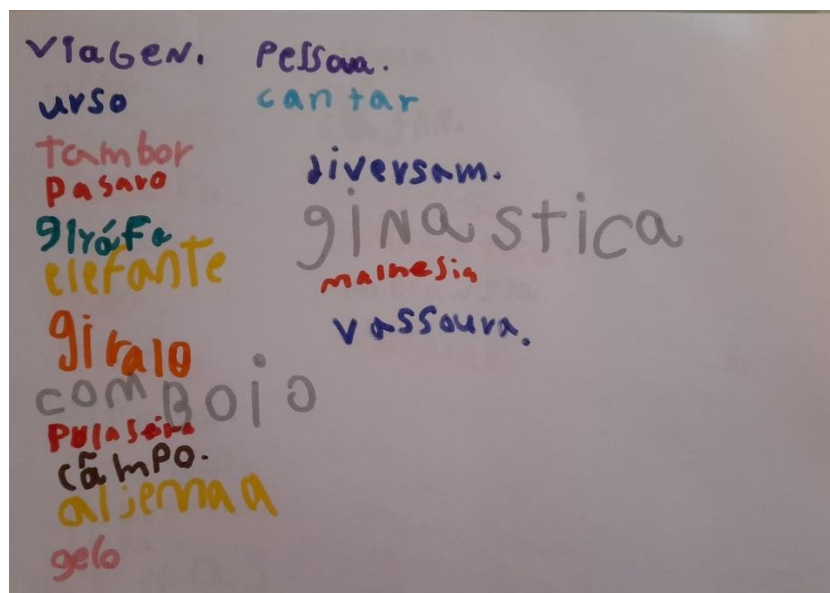 viaGeN.
urso
tambor
Pasaro
giráfa
elefante
giralo
comBoio
Pulaseira
cãmpo.
aljemaa
gelo
Pessoua.
cantar
diversam.
giNastica
malnesia
vassoura.